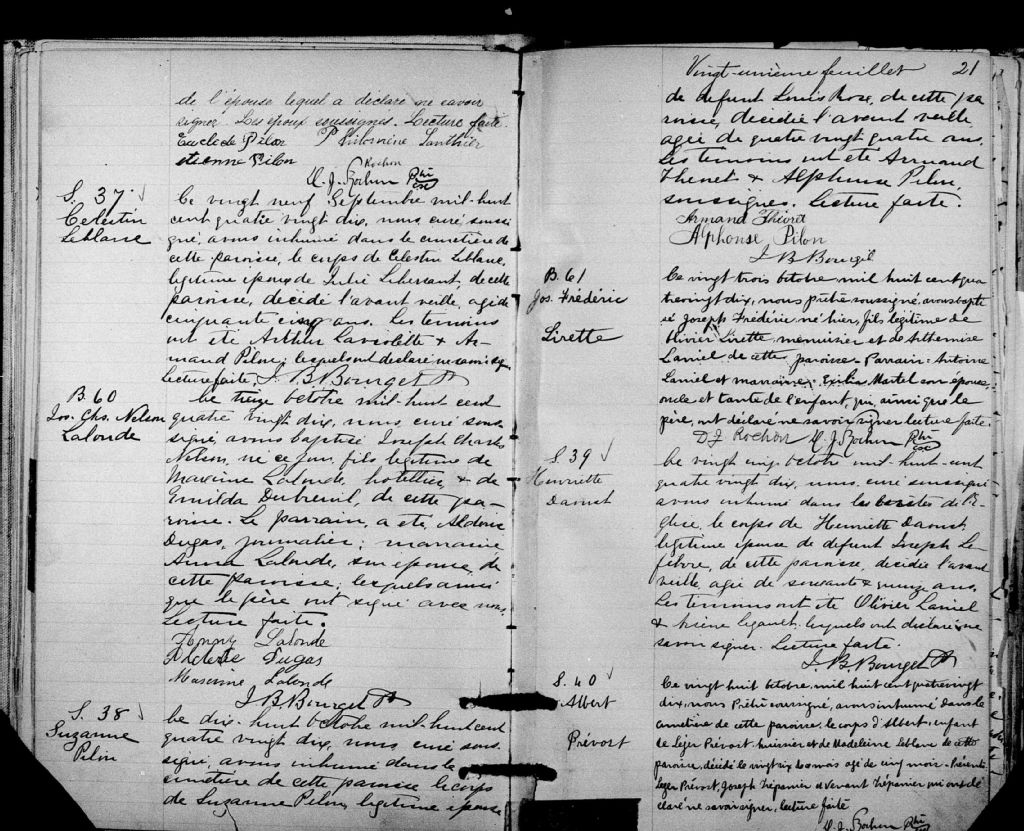 de l'épouse lequel a déclaré ne savoir
signer. Les époux soussignés. Lecture faite.
Euclide Pilon Philomine Gauthier
etienne Pilon
Rochon
M. J. Rochon Ptre
S. 37
Celestin
Leblanc
Ce vingt neuf Septembre mil-huit
cent quatre vingt dix, nous curé soussi
gné, avons inhumé dans le cimetière de
cette paroisse, le corps de Celestin Leblanc,
legitime époux de Julie Libersant, de cette
paroisse, décédé l'avant veille, agé de
cinquante cinq ans. Les temoins
ont été Arthur Laviolette & Ar-
mand Pilon; lesquels ont déclaré ne savoir sig.
Lecture faite, J. B. Bourget Ptr
B. 60
Jos. Chs. Nelson
Lalonde
Ce treize octobre mil-huit cent
quatre vingt dix, nous curé sous-
signé, avons baptisé Joseph Charles
Nelson, né ce jour, fils legitime de
Maxime Lalonde, hotellier, & de
Ermilda Dubreuil, de cette pa-
roisse. Le parrain, a été, Aldem
Dugas, journalier; marraine
Anna Lalonde, son épouse, de
cette paroisse; lesquels ainsi
que le père ont signé avec nous.
Lecture faite.
Lalonde
Dugas
Maxime Lalonde
J. B. Bourget Ptr
S. 38
Suzanne
Pilon
Ce dix-huit octobre mil-huit cent
quatre vingt dix, nous curé sous-
signé, avons inhumé dans le
cimetière de cette paroisse le corps
de Suzanne Pilon, legitime épouse
Vingt-unième feuillet 21
de defunt Louis Rose, de cette pa
roisse, décédée l'avant veille
agée de quatre vingt quatre ans.
Les temoins ont été Armand
Thenet & Alphonse Pilon,
soussignés. Lecture faite.
Armand Théoret
Alphonse Pilon
J B Bourget
B. 61
Jos. Frédéric
Lirette
Ce vingt trois octobre mil huit cent qua
trevingt dix, nous prêtre soussigné, avons bapti
sé Joseph Frédéric né hier, fils legitime de
Olivier Lirette, menuisier et de Arthemise
Laniel de cette paroisse. Parrain Antoine
Laniel et marraine Exilia Martel son épouse,
oncle et tante de l'enfant, qui, ainsi que le
père, ont déclaré ne savoir signer lecture faite.
D J Rochon M. J. Rochon Ptre
S. 39
Henriette
Daoust
Ce vingt cinq octobre mil-huit-cent
quatre vingt dix, nous curé soussigné
avons inhumé dans les de l'é-
glise, le corps de Henriette Daoust,
legitime épouse de defunt Joseph Le-
febvre, de cette paroisse, décédée l'avant
veille agée de soixante & quinze ans.
Les temoins ont été Olivier Laniel
& Arsène Legault lesquels ont déclaré ne
savoir signer. Lecture faite.
J. B. Bourget Ptr
S. 40
Albert
Prévost
Ce vingt huit octobre mil huit cent quatre vingt
dix, nous Prêtre soussigné, avons inhumé dans le
cimetière de cette paroisse le corps d'Albert, enfant
de Leger Prévost huissier et de Madeleine Leblanc de cette
paroisse, décédé le vingt six du mois agé de cinq mois. Présents
Leger Prévost, Joseph Trépanier et Venant Trépanier qui ont dé
claré ne savoir signer, lecture faite
M. J. Rochon Ptre